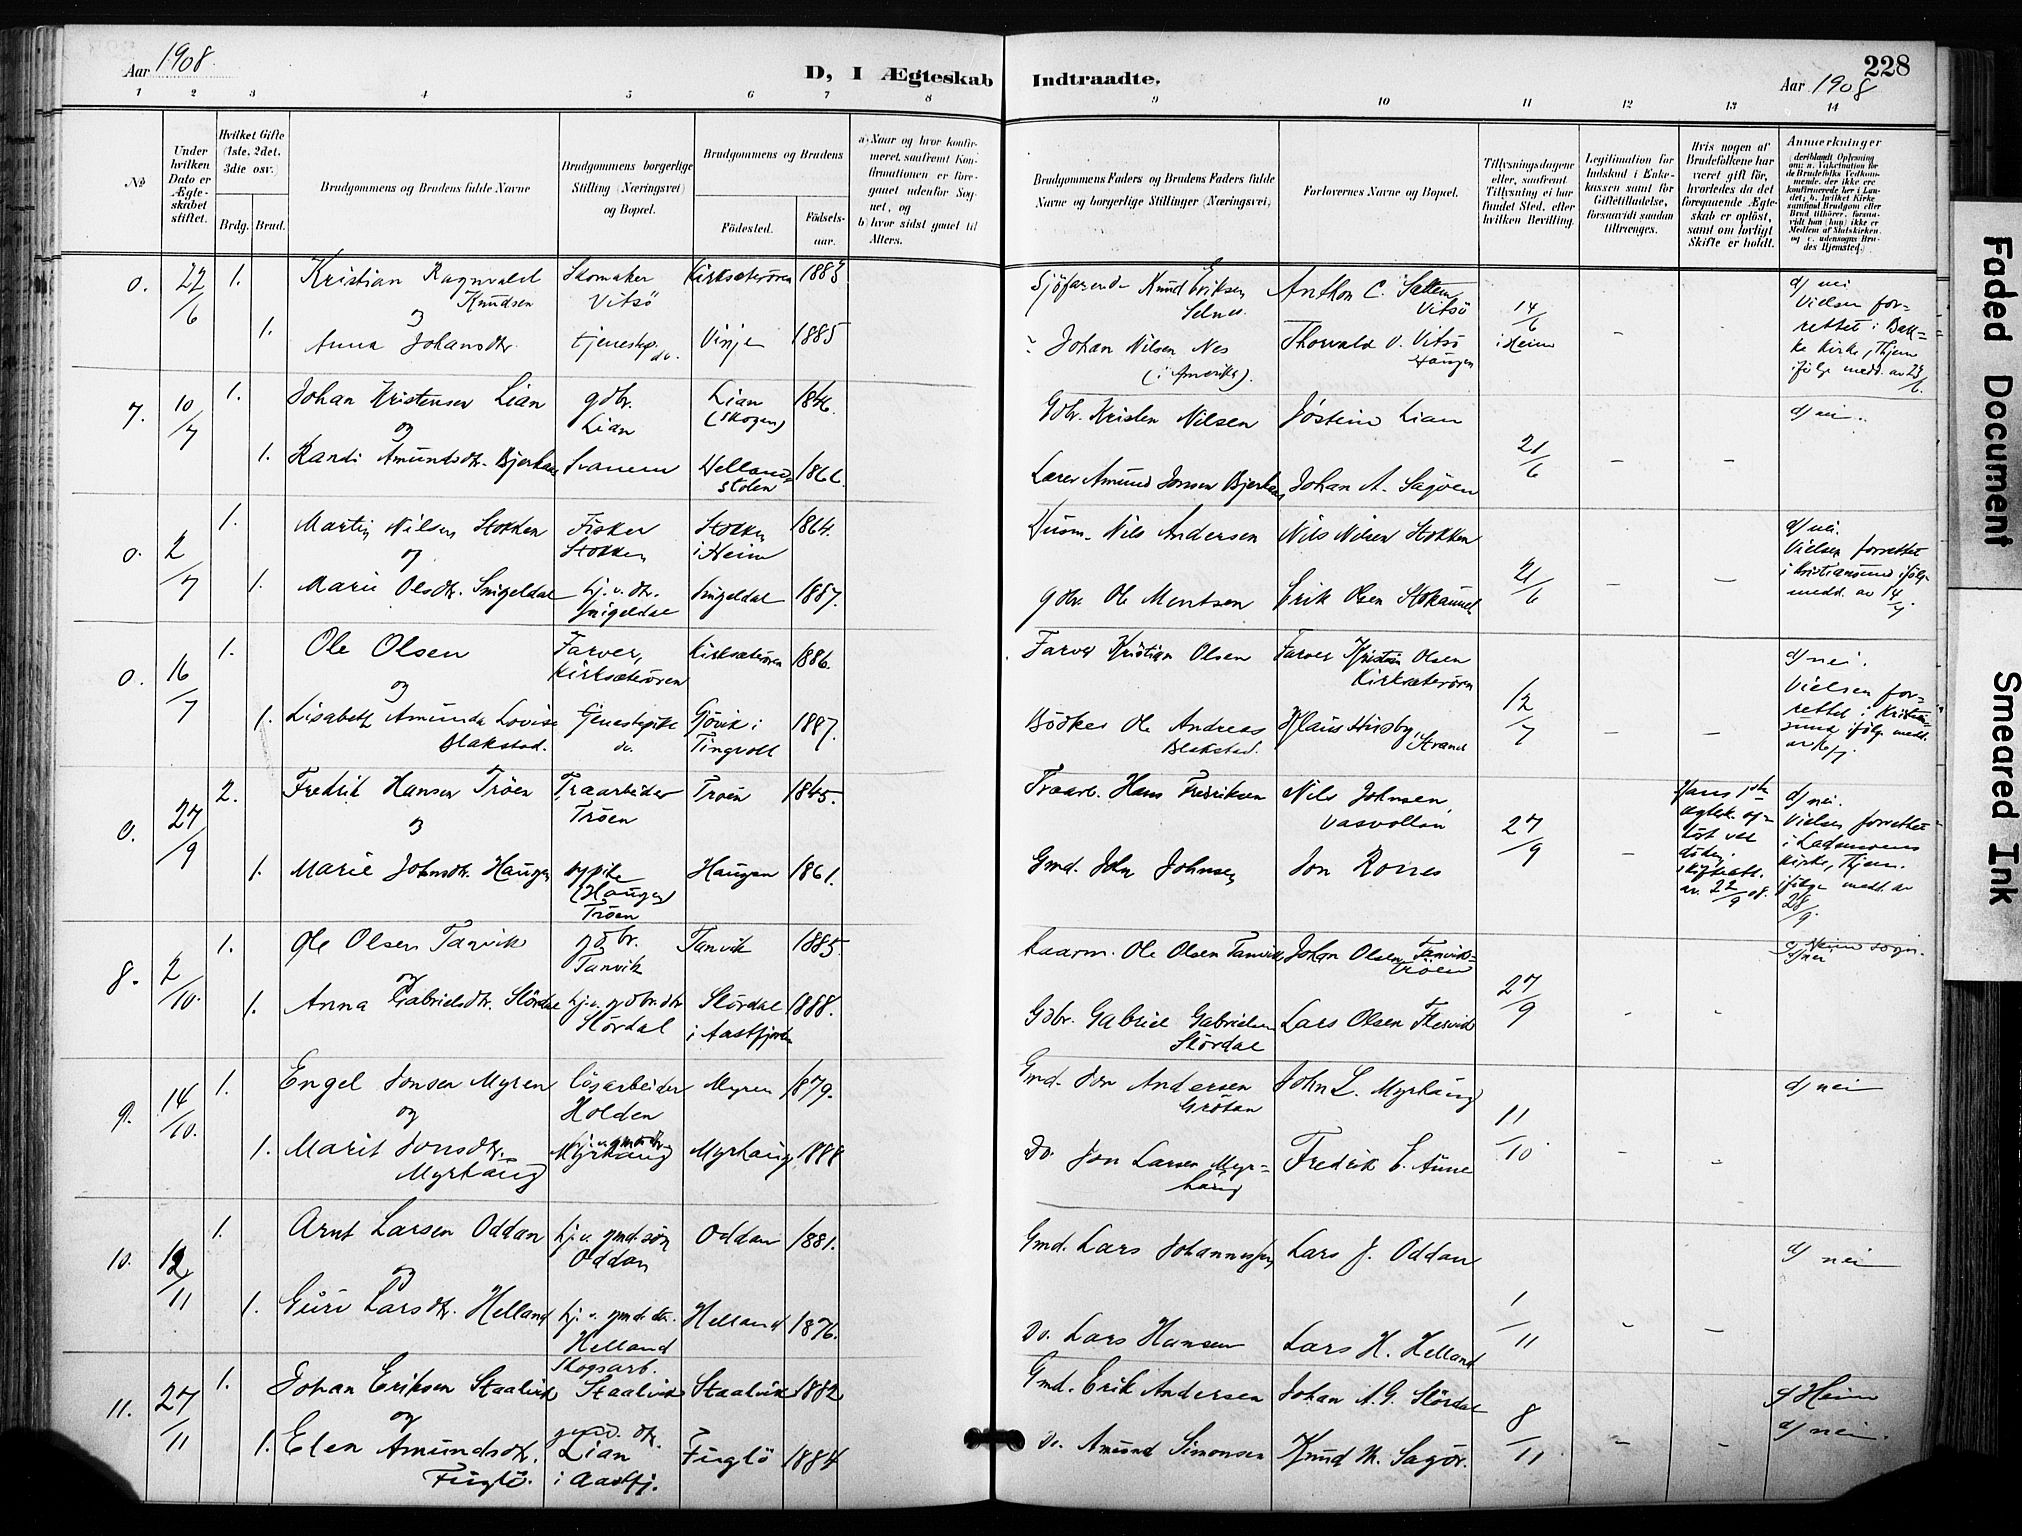 Aar 1908.
D, I Ægteskab
Indtraadte.
228
Aar 1908
1 2 3 4 5 6 7 8
9 10 11 12 13 14
№
Under hvilken Dato er Ægteskabet stiftet.
Hvilket Gifte (1ste, 2det, 3die osv.)
Brdg. Brud.
Brudgommens og Brudens fulde Navne
Brudgommens borgerlige Stilling (Næringsvei) og Bopæl.
Brudgommens og Brudens
Födested.
Födselsaar.
a) Naar og hvor konfirmeret, saafremt Konfirmationen er foregaaet udenfor Sognet, og
b) hvor sidst gaaet til Alters.
Brudgommens Faders og Brudens Faders fulde Navne og borgerlige Stillinger (Næringsvei)
Forlovernes Navne og Bopæl.
Tillysningsdagene eller, saafremt Tillysning ei har fundet Sted, efter hvilken Bevilling.
Legitimation for Indskud i Enkekassen samt for Giftetilladelse, forsaavidt saadan tiltrænges.
Hvis nogen af Brudefolkene har været gift før, hvorledes da det foregaaende Ægteskab er oplöst, samt om lovligt Skifte er holdt.
Anmerkninger
0. 22/6 1. Kristian Ragnvald Knudsen Skomaker Vitsö Kirksæterören 1883 Sjöfarende Knud Eriksen Selnes Anthon C. Sættem Vitsö 14/6 i Heim - - d/ nei Vielsen forrettet i Bakke Kirke, Thjem ifölge medd. av 23/6.
og
1. Anna Johansdtr. tjenestep. do. Vinje 1885 Johan Nilsen Nes (i Amerika). Thorvald O. Vitsö Haugen
7. 10/7 1. Johan Kristensen Lian gdbr. Lian Lian (Skogen) 1846. Gdbr. Kristen Nilsen Jöstein Lian 21/6 - - d/ nei.
og
1. Randi Amundsdtr. Bjerkaas Svanem Hellandstolen 1866. Lærer Amund Jonsen Bjerkaas Johan A. Sagöen
0. 2/7 1. Martin Nilsen Stokken Fisker Stokken Stokken i Heim 1864. Husm. Nils Andersen Nils Nilsen Stokken 21/6 - - d/ nei. Vielsen forrettet i Kristiansund ifölge medd. av 14/7.
og
1. Marie Olsdtr. Snigeldal hj. v. dtr. Snigeldal Snigeldal 1887. gdbr. Ole Mentsen Erik Olsen
0. 16/7 1. Ole Olsen Farver, Kirksæterören Kirksæterören 1886. Farver Kristian Olsen Farver Kristian Olsen Kirksæterören 12/7 - - d/ nei. Vielsen forrettet i Kristiansund ifölge medd. av 16/7.
og
1. Lisabeth Amunda Lovise Blakstad. tjenestepike do. Gjövik i Tingvoll 1887. Bödker Ole Andreas Blakstad. Strand
0. 27/9 2. Fredrik Hansen Tröen Træarbeider Tröen Tröen 1845. Træarb. Hans Fredriksen Nils Johnsen Vasvollan 27/9 - Hans 1ste ægtesk. oplöst ved döden. skifteatt. av 22/9 08. d/ nei. Vielsen forrettet i Lademoens Kirke, Thjem. ifölge medd. av 28/9.
og
1. Marie Johnsdtr. Haugen sypike (Haugen) Tröen Haugen 1861. Gmd. John Johnsen Jon
8. 2/10. 1. Ole Olsen Tanvik gdbr. Tanvik Tanvik 1885. Kaarm. Ole Olsen Tanvik Johan Olsen Tanvik-Tröen 27/9 - - Heim sogn. d/ nei
og
1. Anna Gabrielsdtr. Slördal hj. v. gdbr. dtr. Slördal Slördal i Aastfjorden 1888. Gdbr. Gabriel Gabrielsen Slördal Lars Olsen
9. 14/10. 1. Engel Jonsen Myren lösarbeider Holden Myren 1879. Gmd. Jon Andersen Grötan John L. Myrhaug 11/10 - - d/ nei
og
1. Marit Jonsdtr. Myrhaug hj. v. gmd. dtr. Myrhaug Myrhaug 1888 Do. Jon Larsen Myrhaug Fredrik E. Aune
10. 12/11 1. Arnt Larsen Oddan hj. v. gmd. sön Oddan Oddan 1881. Gmd. Lars Johannessen Lars J. Oddan 1/11 - - d/ nei
og
1. Guri Larsdtr. Helland hj. v. gmd. dtr. Helland Helland 1876. Do. Lars Hansen Lars H. Helland
11. 27/11 1. Johan Eriksen Staalvik Skogsarb. Staalvik Staalvik 1882 Gmd. Erik Andersen Johan A. G. Slördal 8/11 - - Heim d/ nei.
og
1. Elen Amundsdtr. Fuglö. gmd. dtr. Lian i Aastfj. Fuglö 1884 Do. Amund Simonsen Knud M. Sagör.
Faded Document
Smeared Ink